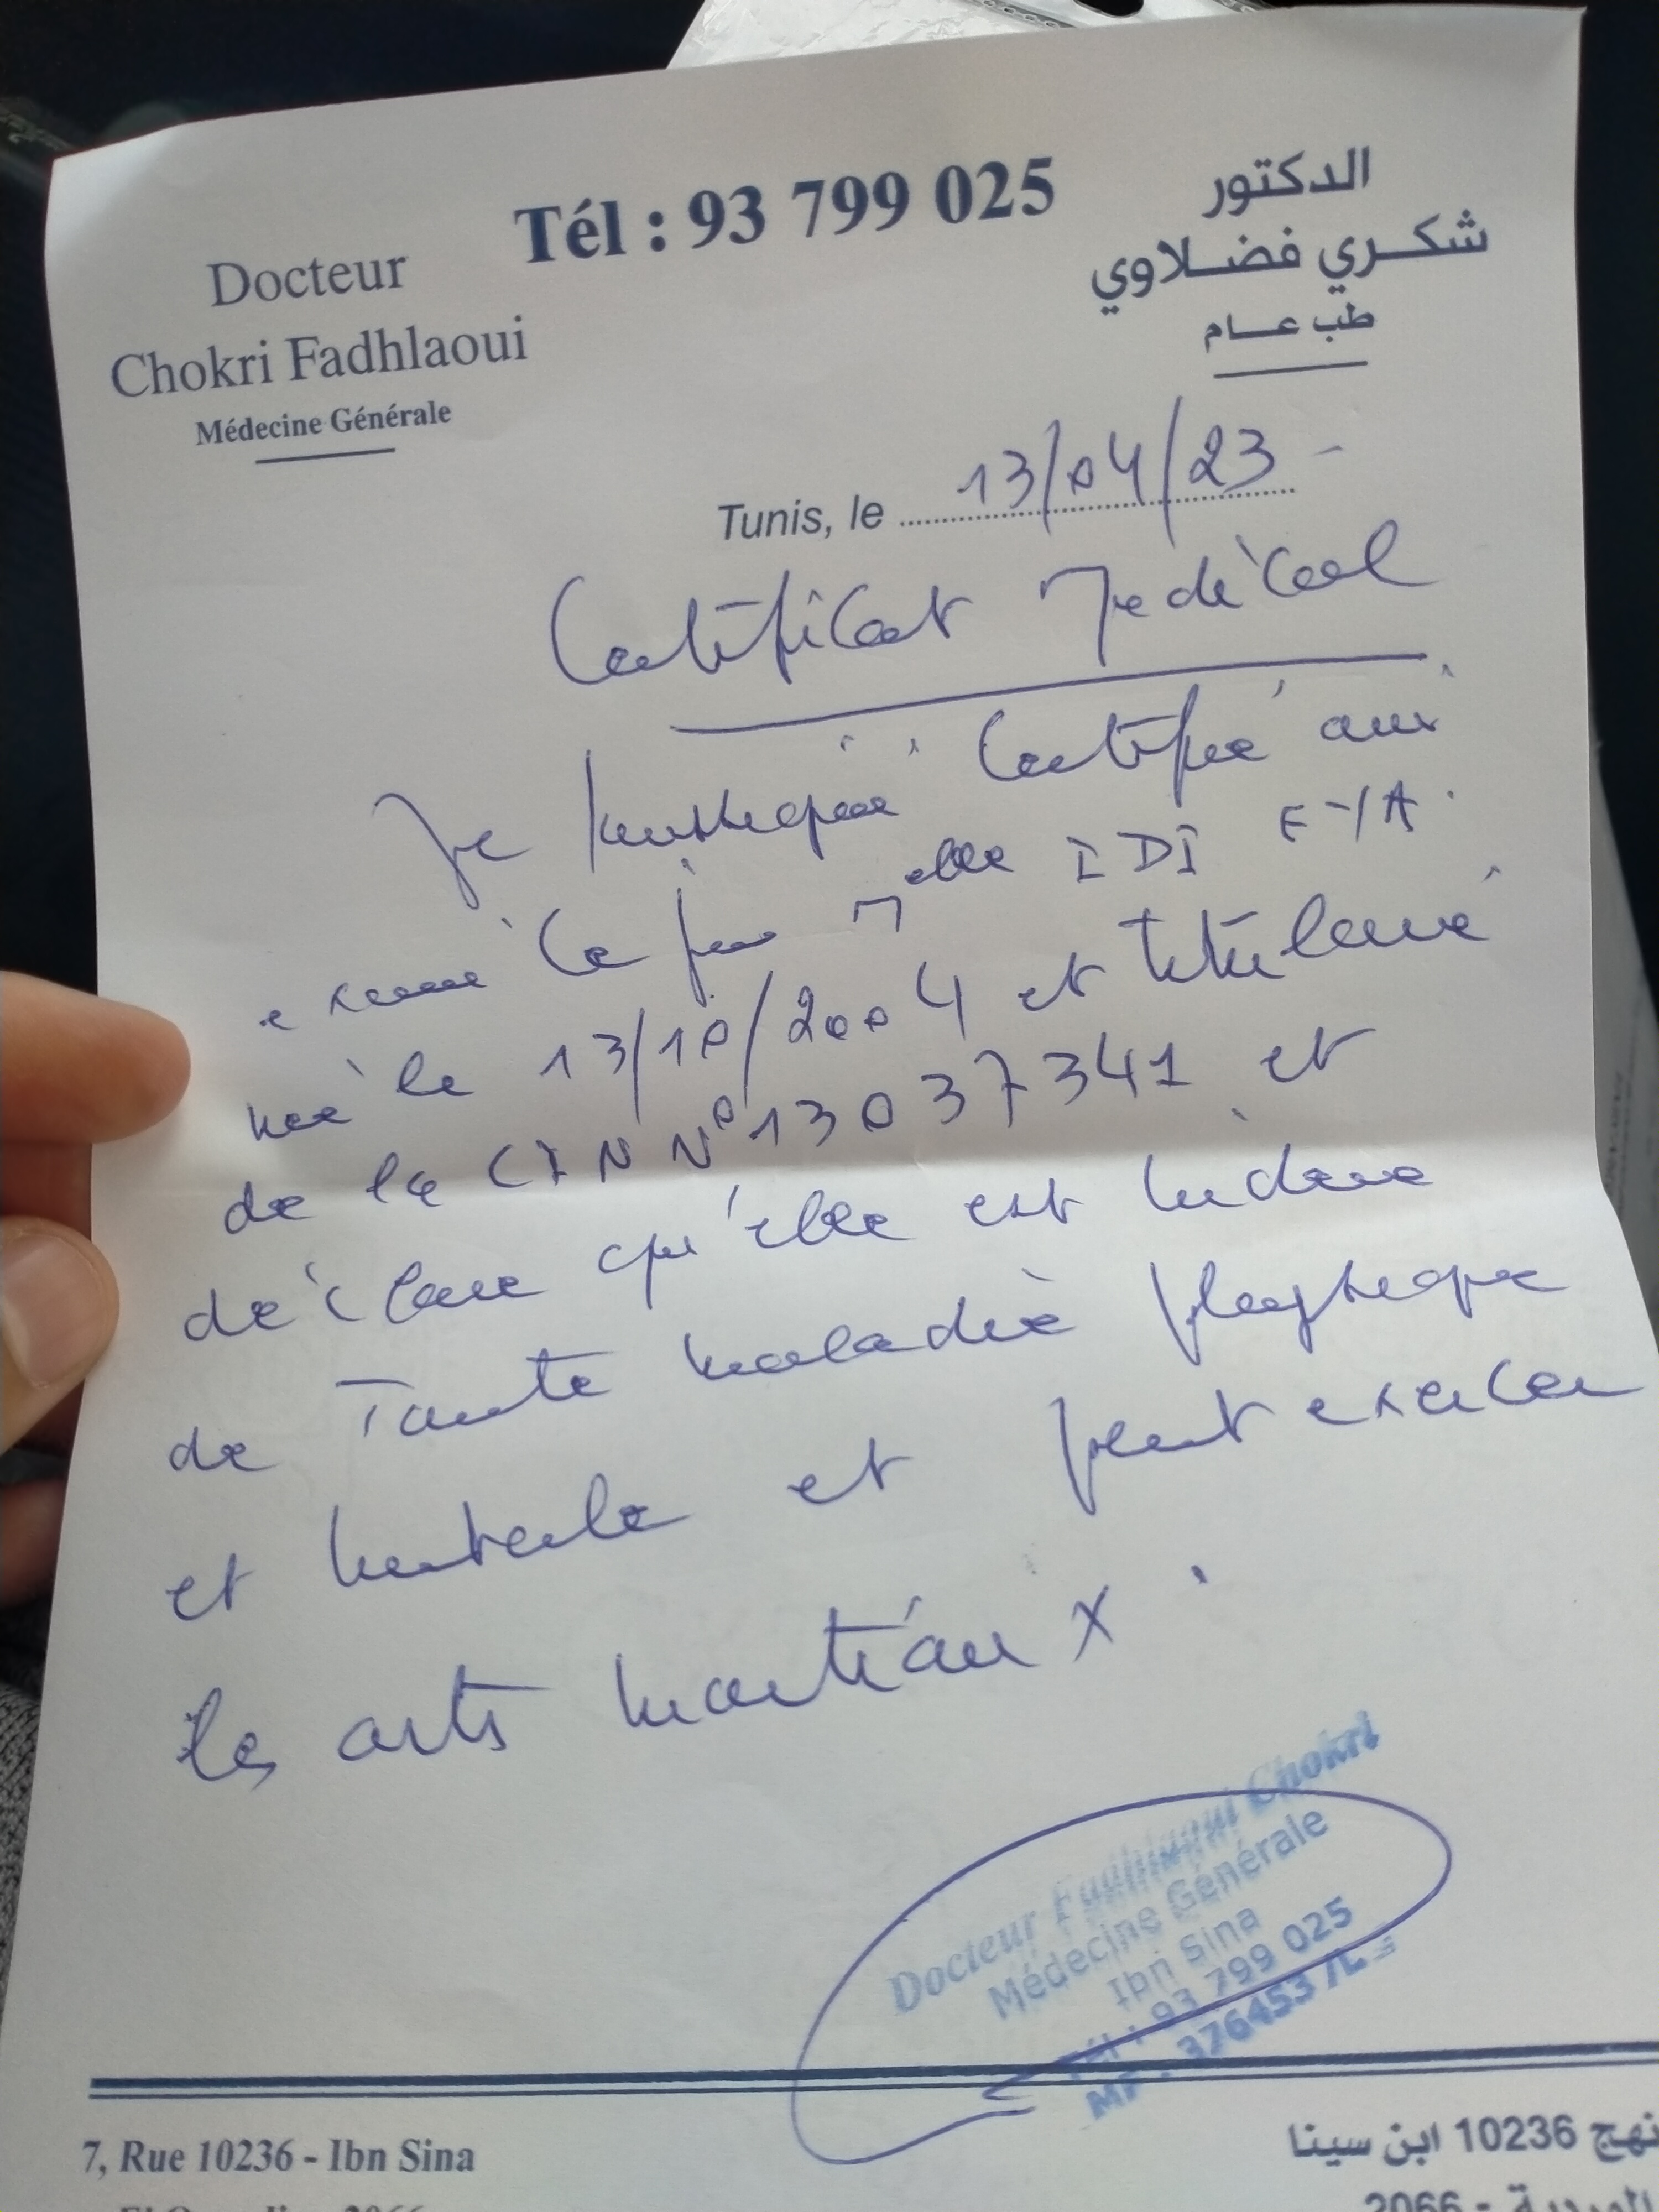 Tél : 93 799 025
Docteur
Chokri Fadhlaoui
Médecine Générale
الدكتور
شكري فضلاوي
طب عام
Tunis, le 13/04/23 -
Certificat Médical
Je soussigné Certifie avoir
examiné ce jour Melle IDI EYA
née le 13/10/2004 et titulaire
de la CIN N° 13037341 et
déclare qu'elle est indemne
de Toute maladie physique
et mentale et peut exercer
les arts martiaux.
Docteur Fadhlaoui Chokri
Médecine Générale
Ibn Sina
Tél : 93 799 025
MF : 376453 /L
7, Rue 10236 - Ibn Sina
نهج 10236 ابن سينا
2066
2066 -